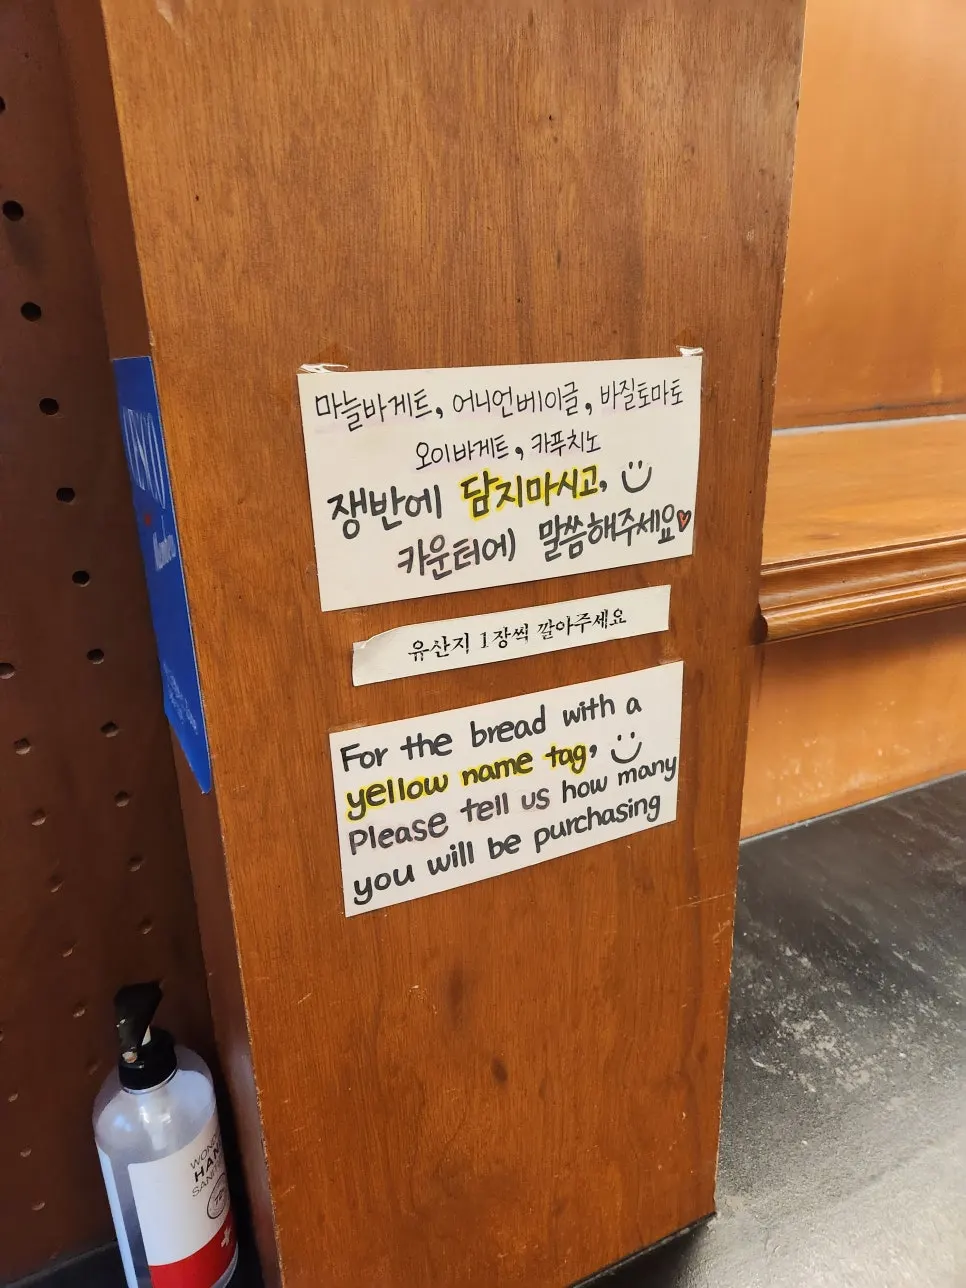 마늘바게트, 어니언베이글, 바질토마토
오이바게트, 카푸치노
쟁반에 담지마시고,
카운터에 말씀해주세요
유산지 1장씩 깔아주세요
For the bread with a
yellow name tag,
Please tell us how many
you will be purchasing
HAN
SANITI